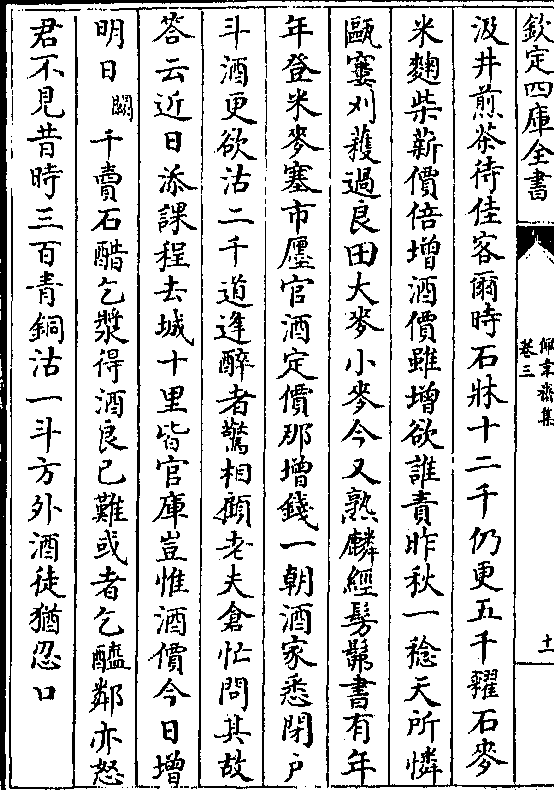 欽定四庫全書
佩韋齋集
卷三
十一
汲井煎茶待佳客爾時石牀十二千仍更五千糴石麥
米麴柴薪價倍增酒價雖增欲誰責昨秋一稔天所憐
甌窶刈穫過良田大麥小麥今又熟麟經髣髴書有年
年登米麥塞市廛官酒定價那增錢一朝酒家悉閉户
斗酒更欲沽二千道逢醉者驚相顧老夫倉忙問其故
答云近日添課程去城十里皆官庫豈惟酒價今日增
明日闕千賣石醋乞漿得酒良已難或者乞醯鄰亦怒
君不見昔時三百青銅沽一斗方外酒徒猶忍口